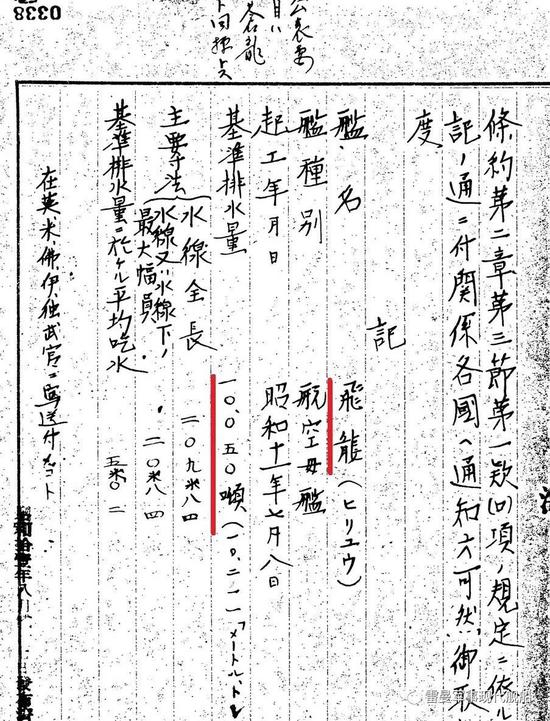 公表要
蒼龍
0338
條約第二章第三節第一款(ロ)項ノ規定ニ依ル
記ノ通ニ付關係各國ヘ通知方可然御取
度
記
艦名 飛龍(ヒリユウ)
艦種別 航空母艦
起工年月日 昭和十一年七月八日
基準排水量 一〇、〇五〇噸(一〇、二一一メートル、ト
主要寸法
水線全長 二〇九米八四
水線又ハ水線下ノ
最大幅員 二〇米八四
基準排水量ニ於ケル平均吃水 五米〇二
在英米佛伊独武官ニ寫送付ノコト
雷曼军事现代舰船